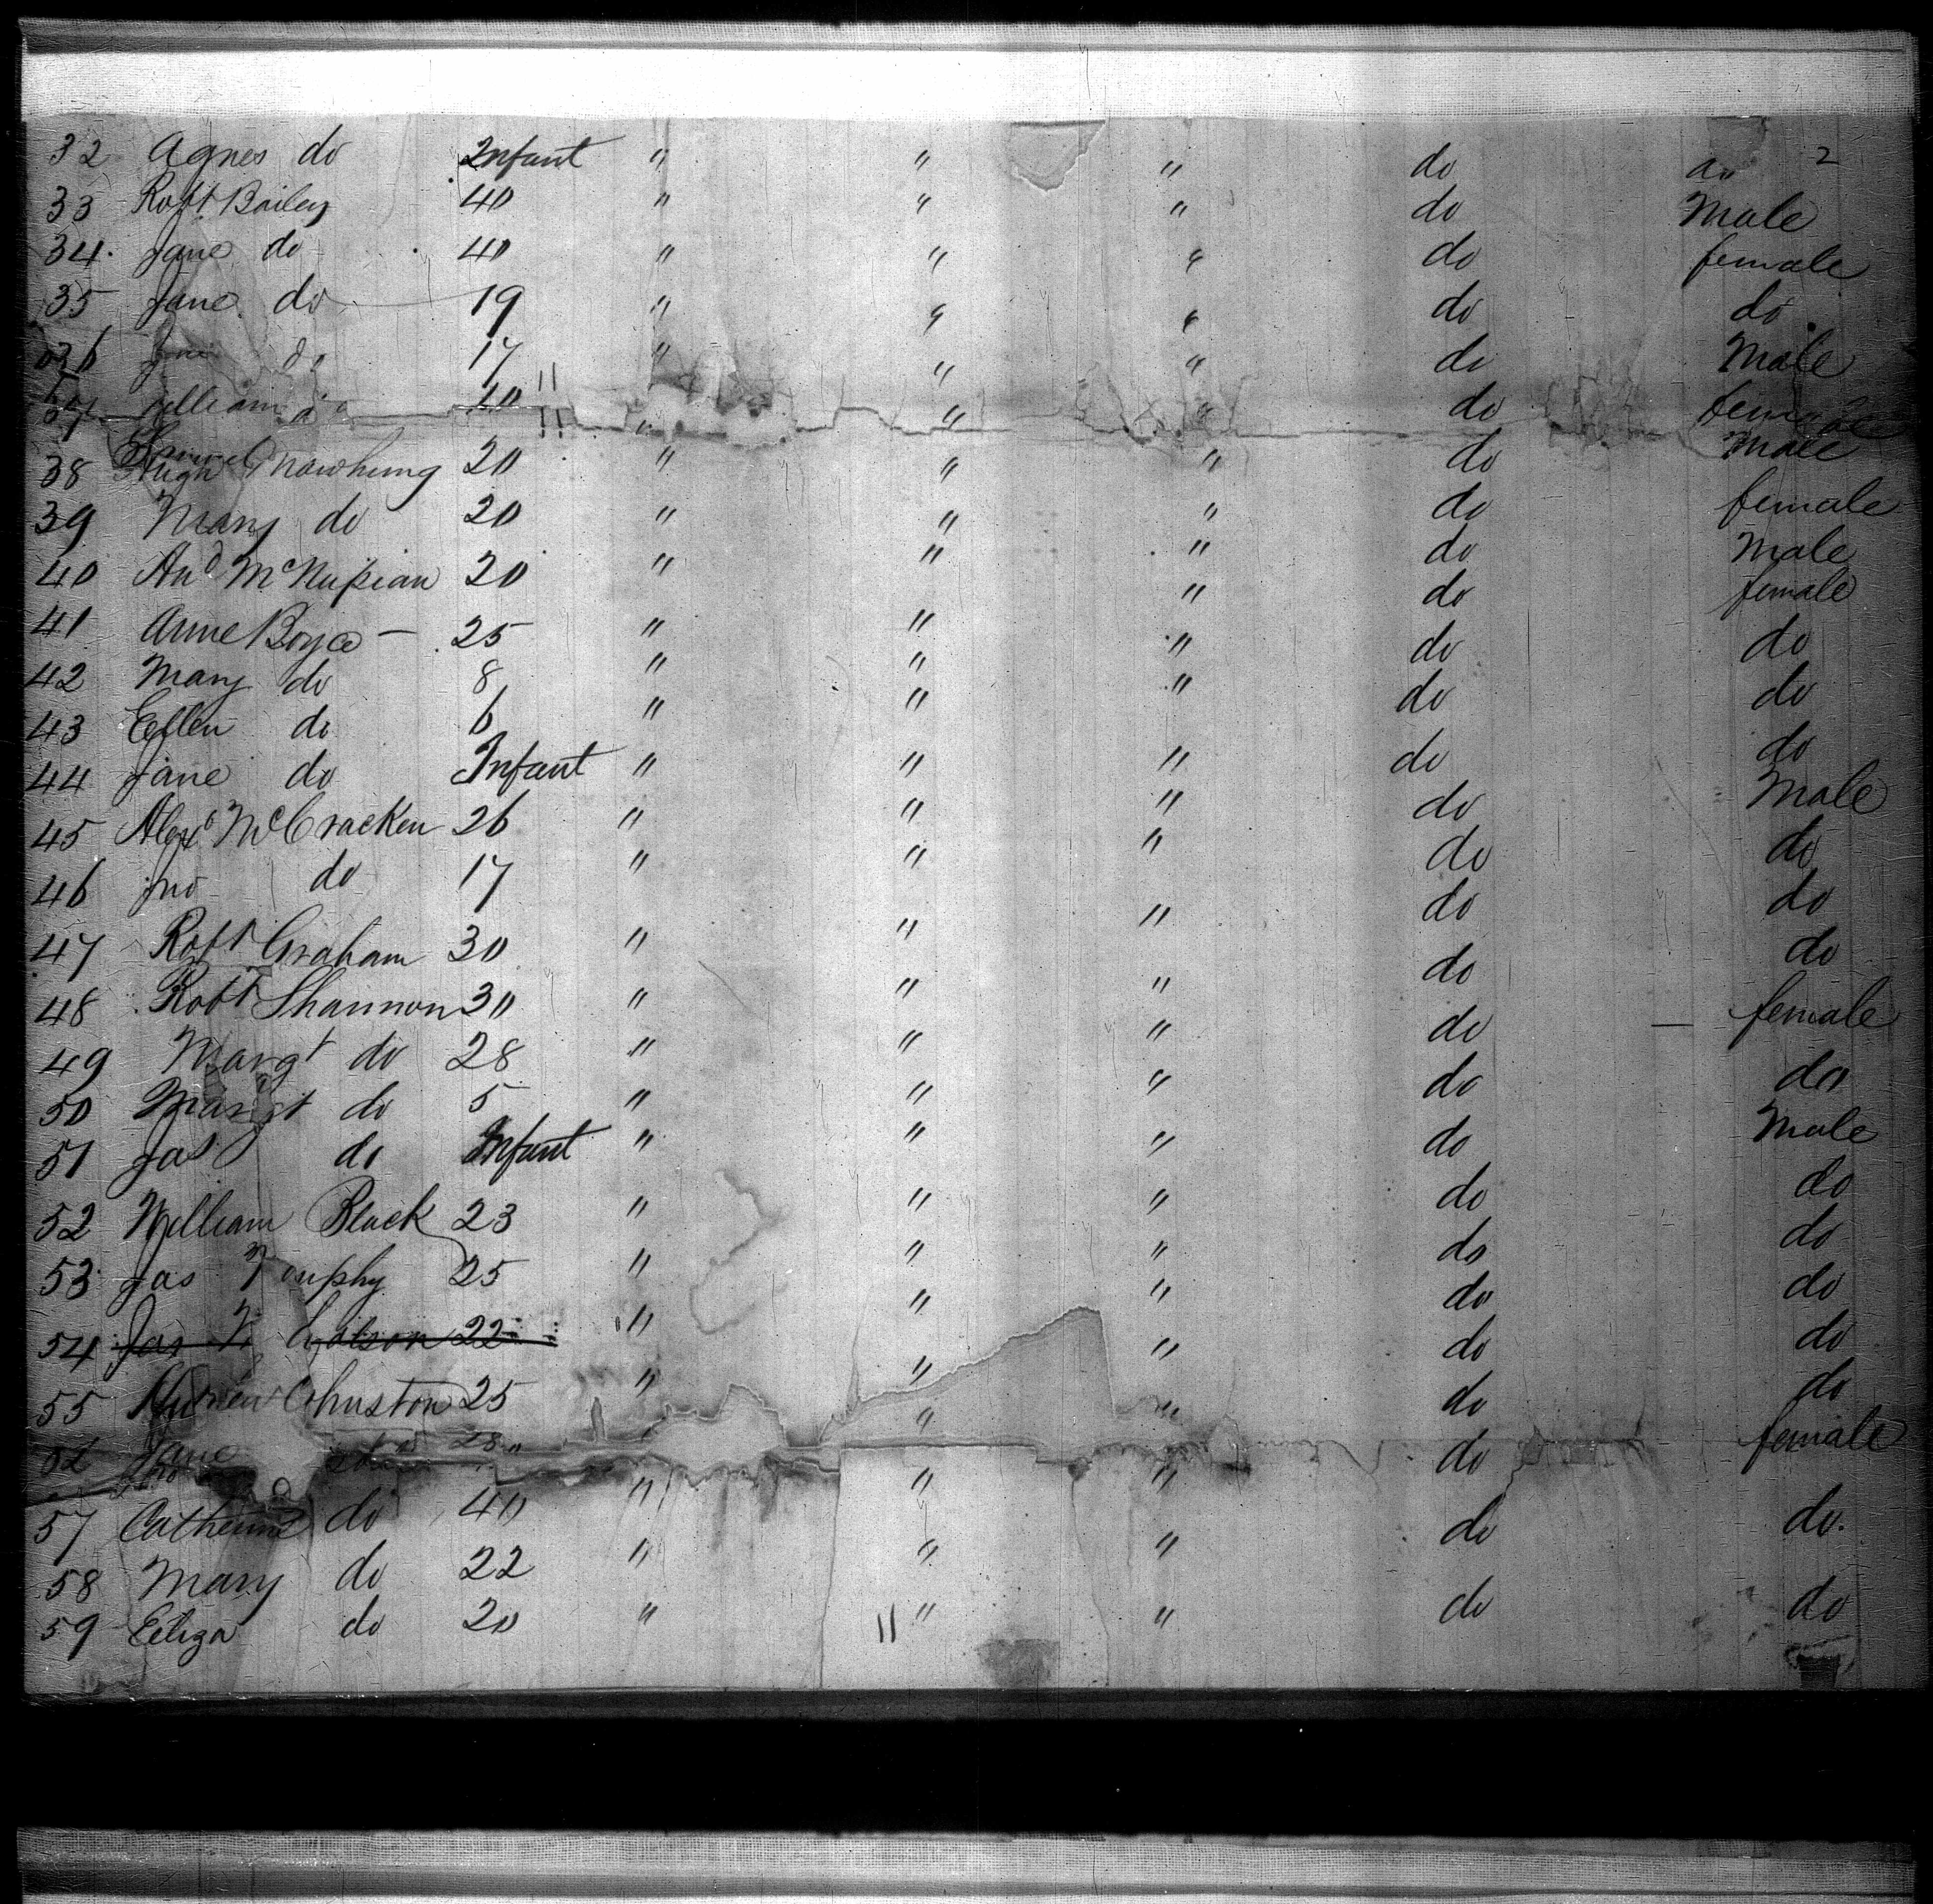 2
32 Agnes do Infant " " " do do
33 Robt Bailey 40 " " " do Male
34 Jane do 40 " " " do female
35 Jane do 19 " " " do do
36 Jno do 17 " " " do Male
37 William do 10 " " " do female
38 Hugh 20 " " " do Male
39 Mary do 20 " " " do female
40 And 20 " " " do Male
41 Anne Boyce — 25 " " " do female
42 Mary do 8 " " " do do
43 Ellen do 6 " " " do do
44 Jane do Infant " " " do do
45 Alexr McCracken 26 " " " do Male
46 Jno do 17 " " " do do
47 Robt Graham 30 " " " do do
48 Robt Shannon 30 " " " do do
49 Margt do 28 " " " do female
50 Margt do 5 " " " do do
51 Jas do Infant " " " do Male
52 William Black 23 " " " do do
53 Jas 25 " " " do do
54 Jas 22 " " " do do
55 Andrew Johnston 25 " " " do do
Jane do 28 " " " do female
57 Catherine do 40 " " " do do
58 Mary do 22 " " " do do
59 Eliza do 20 " " " do do